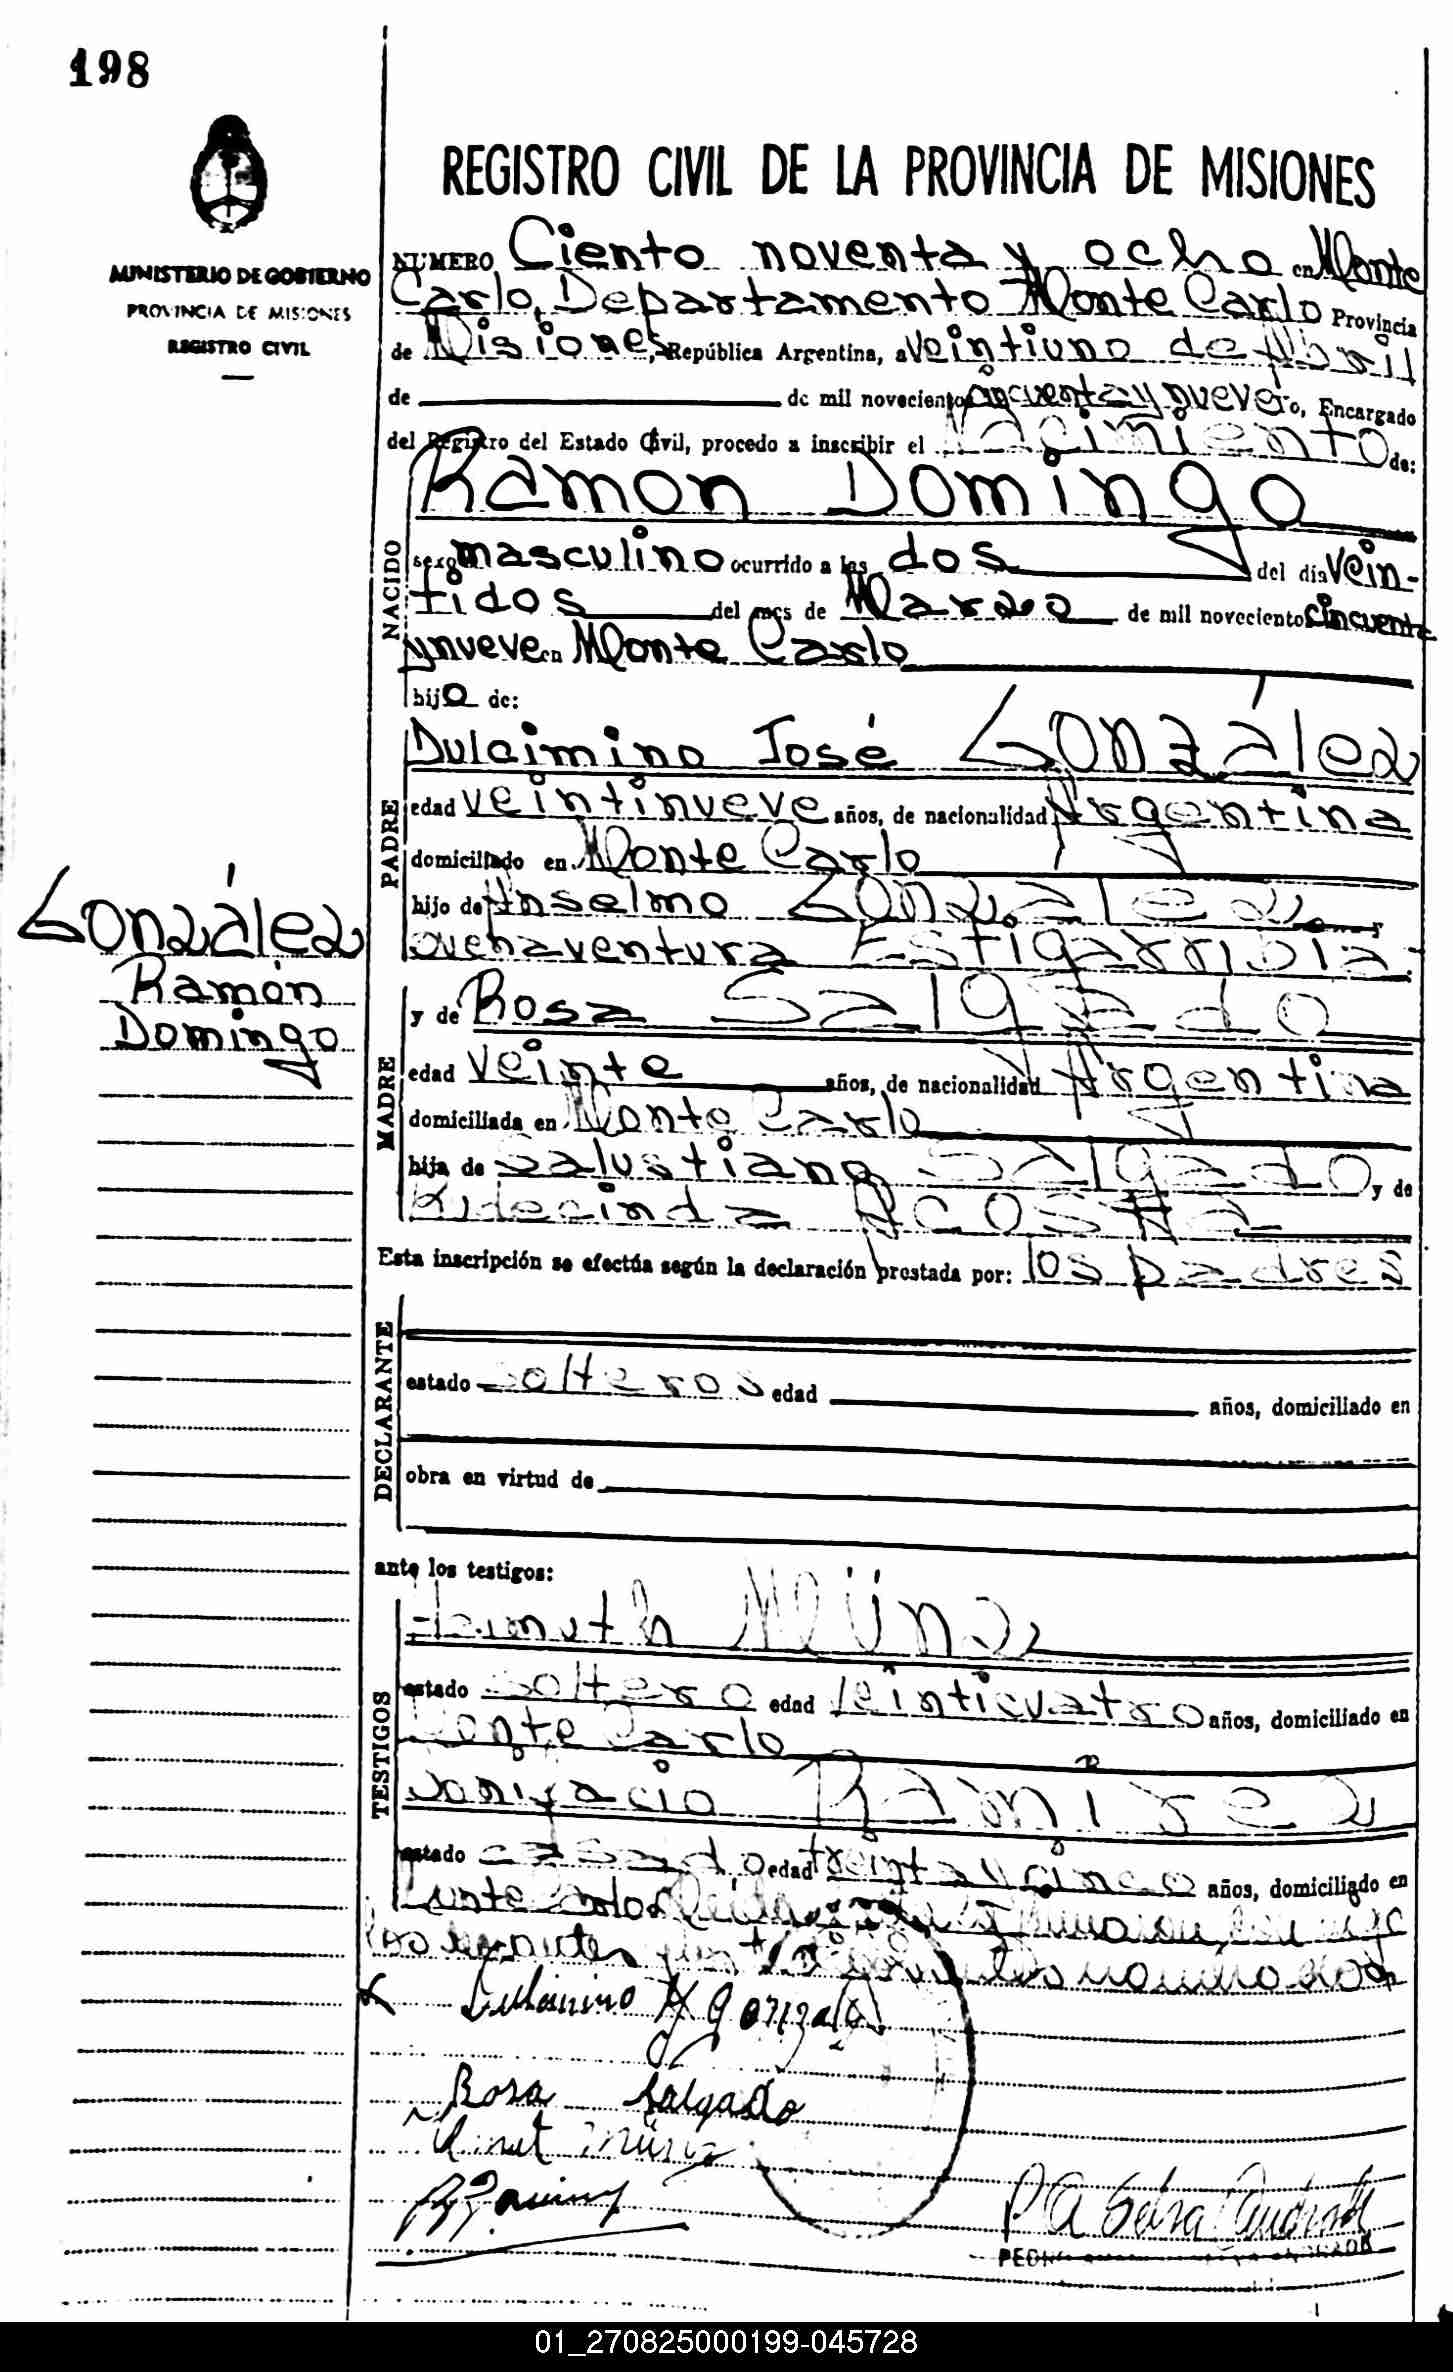 198
REGISTRO CIVIL DE LA PROVINCIA DE MISIONES
MINISTERIO DE GOBIERNO
PROVINCIA DE MISIONES
REGISTRO CIVIL
NUMERO Ciento noventa y ocho en Monte
Carlo, Departamento Monte Carlo Provincia
de Misiones, República Argentina, a veintiuno de Abril
de de mil novecientos cincuenta y nueve, Encargado
del Registro del Estado Civil, procedo a inscribir el Nacimiento de:
Ramon Domingo
NACIDO
sexo masculino ocurrido a las dos del dia vein-
tidos del mes de Marzo de mil novecientos cincuenta
y nueve en Monte Carlo
hijo de:
Dulcimino José González
PADRE
edad veintinueve años, de nacionalidad Argentina
domiciliado en Monte Carlo
hijo de Anselmo González y
Buenaventura Estigarribia.
González
Ramón
Domingo
y de Rosa Salgado
MADRE
edad veinte años, de nacionalidad Argentina
domiciliada en Monte Carlo
hija de Salustiano Salgado y de
Acosta
Esta inscripción se efectúa según la declaración prestada por: los padres
DECLARANTE
estado solteros edad años, domiciliado en
obra en virtud de
ante los testigos:
TESTIGOS
Helmuth Münz
estado soltero edad veinticuatro años, domiciliado en
Monte Carlo
Bonifacio Ramirez
estado casado edad treinta y cinco años, domiciliado en
Monte Carlo
Gonzalez
Rosa Salgado
Münz
01_270825000199-045728